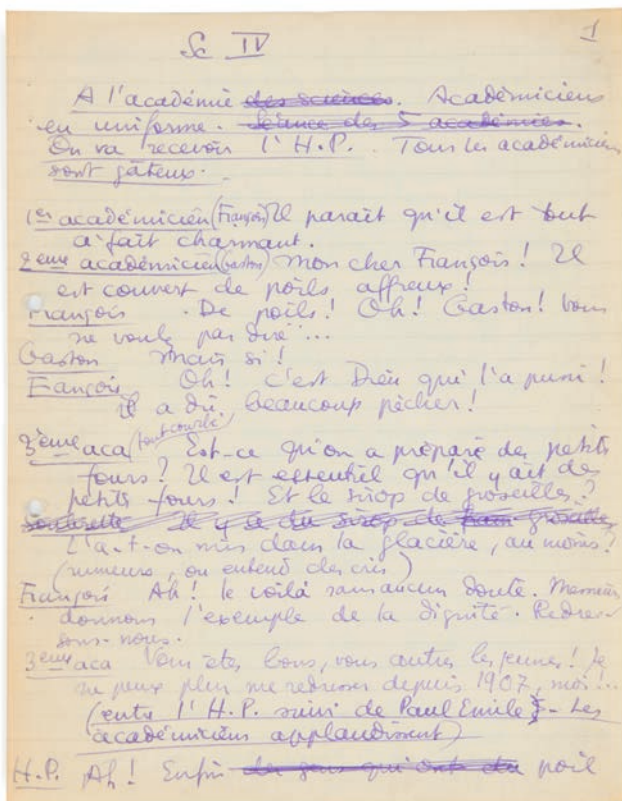 1
Sc IV
A l'académie des sciences. Académiciens
en uniforme. Séance des 5 académies.
On va recevoir l'H.P. Tous les académiciens
sont gâteux.
1er académicien (François) Il parait qu'il est tout
à fait charmant.
2eme académicien (Gaston) Mon cher François! Il
est couvert de poils affreux!
François . De poils! Oh! Gaston! Vous
ne voulez pas dire...
Gaston Mais si!
François Oh! C'est Dieu qui l'a puni!
il a dû beaucoup pêcher!
3ème aca (tout courbé) Est-ce qu'on a préparé des petits
fours? Il est essentiel qu'il y ait des
petits fours! Et le sirop de groseilles?
Il y a du sirop de groseilles
L'a-t-on mis dans la glacière, au moins?
(rumeurs, on entend des cris)
François Ah! le voilà sans aucun doute. Messieurs
donnons l'exemple de la dignité. Redressons-nous.
3eme aca Vous êtes bons, vous autres les jeunes! Je
ne peux plus me redresser depuis 1907, moi!...
(entre l'H.P. suivi de Paul Emile - Les
académiciens applaudissent)
H.P. Ah! Enfin des gens qui ont du poil